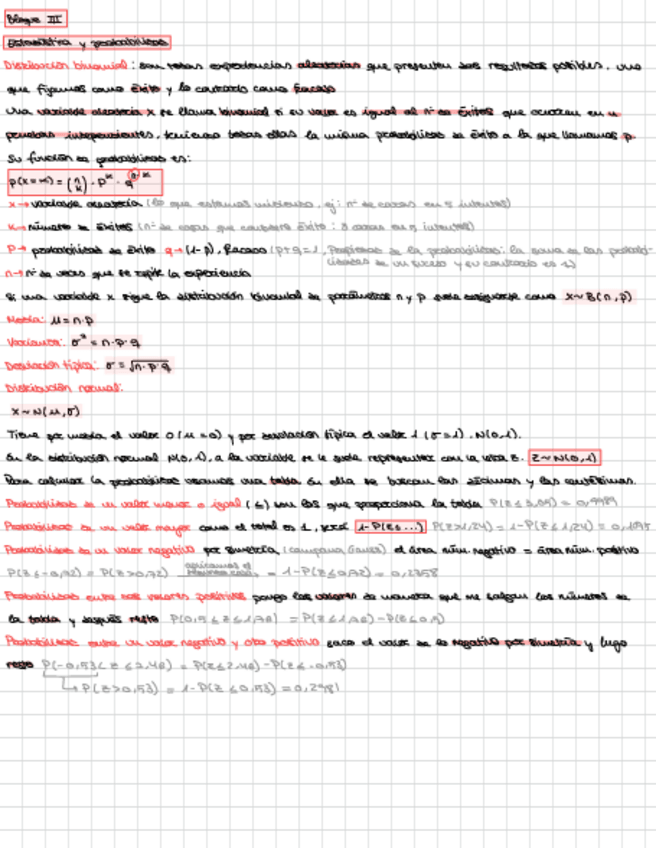 Bloque III
Estadística y probabilidad
Distribución binomial: son todas experiencias aleatorias que presentan dos resultados posibles, uno
que fijamos como éxito y lo contrario como fracaso
Una variable aleatoria x se llama binomial si su valor es igual al nº de éxitos que ocurran en n
pruebas independientes, teniendo todas ellas la misma probabilidad de éxito a la que llamamos p.
Su función de probabilidad es:
P(x=k) = (n k) · p^k · q^n-k
x→ variable aleatoria (lo que estamos midiendo, ej: nº de caras en 5 intentos)
k→ número de éxitos (nº de caras que considero éxito: 3 caras en 5 intentos)
P→ probabilidad de éxito q→ (1-p), fracaso (p+q=1, Propiedades de la probabilidad: la suma de las probabi-
lidades de un suceso y su contrario es 1)
n→ nº de veces que se repite la experiencia
Si una variable x sigue la distribución binomial de parámetros n y p suele designarse como x~B(n,p)
Media: μ=n·p
Varianza: σ² = n·p·q
Desviación típica: σ = √n·p·q
Distribución normal:
x~N(μ,σ)
Tiene por media el valor 0 (μ=0) y por desviación típica el valor 1 (σ=1). N(0,1).
En la distribución normal N(0,1), a la variable se le suele representar con la letra z. Z~N(0,1)
Para calcular la probabilidad usamos una tabla. En ella se buscan las décimas y las centésimas.
Probabilidad de un valor menor o igual (≤) son los que proporciona la tabla P(Z≤3,09) = 0,9989
Probabilidad de un valor mayor como el total es 1, será 1-P(Z≤...) P(Z>1,24) = 1-P(Z≤1,24) = 0,1075
Probabilidad de un valor negativo por simetría, (campana Gauss) el área núm. negativo = área núm. positivo
P(Z≤-0,72) = P(Z>0,72) aplicamos el = 1-P(Z≤0,72) = 0,2358
Probabilidad entre dos valores positivos pongo los valores de manera que me salgan los números de
la tabla y después resto P(0,5≤Z≤1,76) = P(Z≤1,76)-P(Z≤0,5)
Probabilidad entre un valor negativo y otro positivo saco el valor de lo negativo por simetría y luego
resto P(-0,53<Z≤2,46) = P(Z≤2,46)-P(Z≤-0,53)
P(Z>0,53) = 1-P(Z≤0,53) = 0,2981